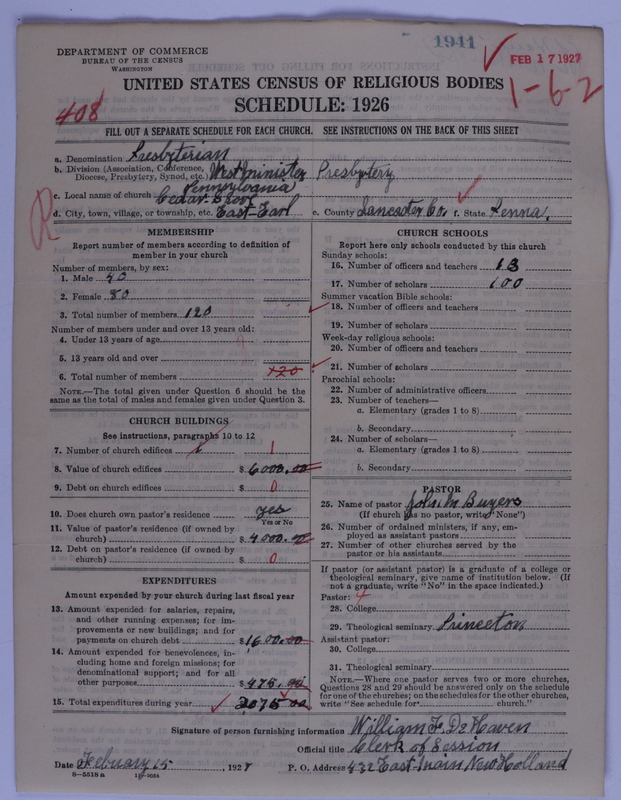 1941
DEPARTMENT OF COMMERCE
BUREAU OF THE CENSUS
WASHINGTON
FEB 17 1927
UNITED STATES CENSUS OF RELIGIOUS BODIES
1-6-2
SCHEDULE: 1926
408
FILL OUT A SEPARATE SCHEDULE FOR EACH CHURCH. SEE INSTRUCTIONS ON THE BACK OF THIS SHEET
a. Denomination Presbyterian
b. Division (Association, Conference, Diocese, Presbytery, Synod, etc.) Westminister Presbytery
Pennsylvania
c. Local name of church Cedar Grove
d. City, town, village, or township, etc. East-Earl e. County Lancaster Co. f. State Penna.
R
MEMBERSHIP
Report number of members according to definition of
member in your church
Number of members, by sex:
1. Male 40
2. Female 80
3. Total number of members 120
Number of members under and over 13 years old:
4. Under 13 years of age
5. 13 years old and over
6. Total number of members 120
NOTE.—The total given under Question 6 should be the
same as the total of males and females given under Question 3.
CHURCH BUILDINGS
See instructions, paragraphs 10 to 12
7. Number of church edifices 1 1
8. Value of church edifices $ 6000.00
9. Debt on church edifices $ 0
10. Does church own pastor's residence yes
Yes or No
11. Value of pastor's residence (if owned by
church) $ 4000.00
12. Debt on pastor's residence (if owned by
church) $ 0
EXPENDITURES
Amount expended by your church during last fiscal year
13. Amount expended for salaries, repairs,
and other running expenses; for im-
provements or new buildings; and for
payments on church debt $ 1600.00
14. Amount expended for benevolences, in-
cluding home and foreign missions; for
denominational support; and for all
other purposes $ 475.00
15. Total expenditures during year 2075 00
CHURCH SCHOOLS
Report here only schools conducted by this church
Sunday schools:
16. Number of officers and teachers 13
17. Number of scholars 100
Summer vacation Bible schools:
18. Number of officers and teachers
19. Number of scholars
Week-day religious schools:
20. Number of officers and teachers
21. Number of scholars
Parochial schools:
22. Number of administrative officers
23. Number of teachers—
a. Elementary (grades 1 to 8)
b. Secondary
24. Number of scholars—
a. Elementary (grades 1 to 8)
b. Secondary
PASTOR
25. Name of pastor John M Buyers
(If church has no pastor, write "None")
26. Number of ordained ministers, if any, em-
ployed as assistant pastors
27. Number of other churches served by the
pastor or his assistants
If pastor (or assistant pastor) is a graduate of a college or
theological seminary, give name of institution below. (If
not a graduate, write "No" in the space indicated.)
Pastor: 4
28. College
29. Theological seminary Princeton
Assistant pastor:
30. College
31. Theological seminary
NOTE.—Where one pastor serves two or more churches,
Questions 28 and 29 should be answered only on the schedule
for one of the churches; on the schedules for the other churches,
write "See schedule for church."
Signature of person furnishing information William F. DeHaven
Official title Clerk of Session
Date February 15, 1927 P. O. Address 432 East-Main New Holland
8—5518 a